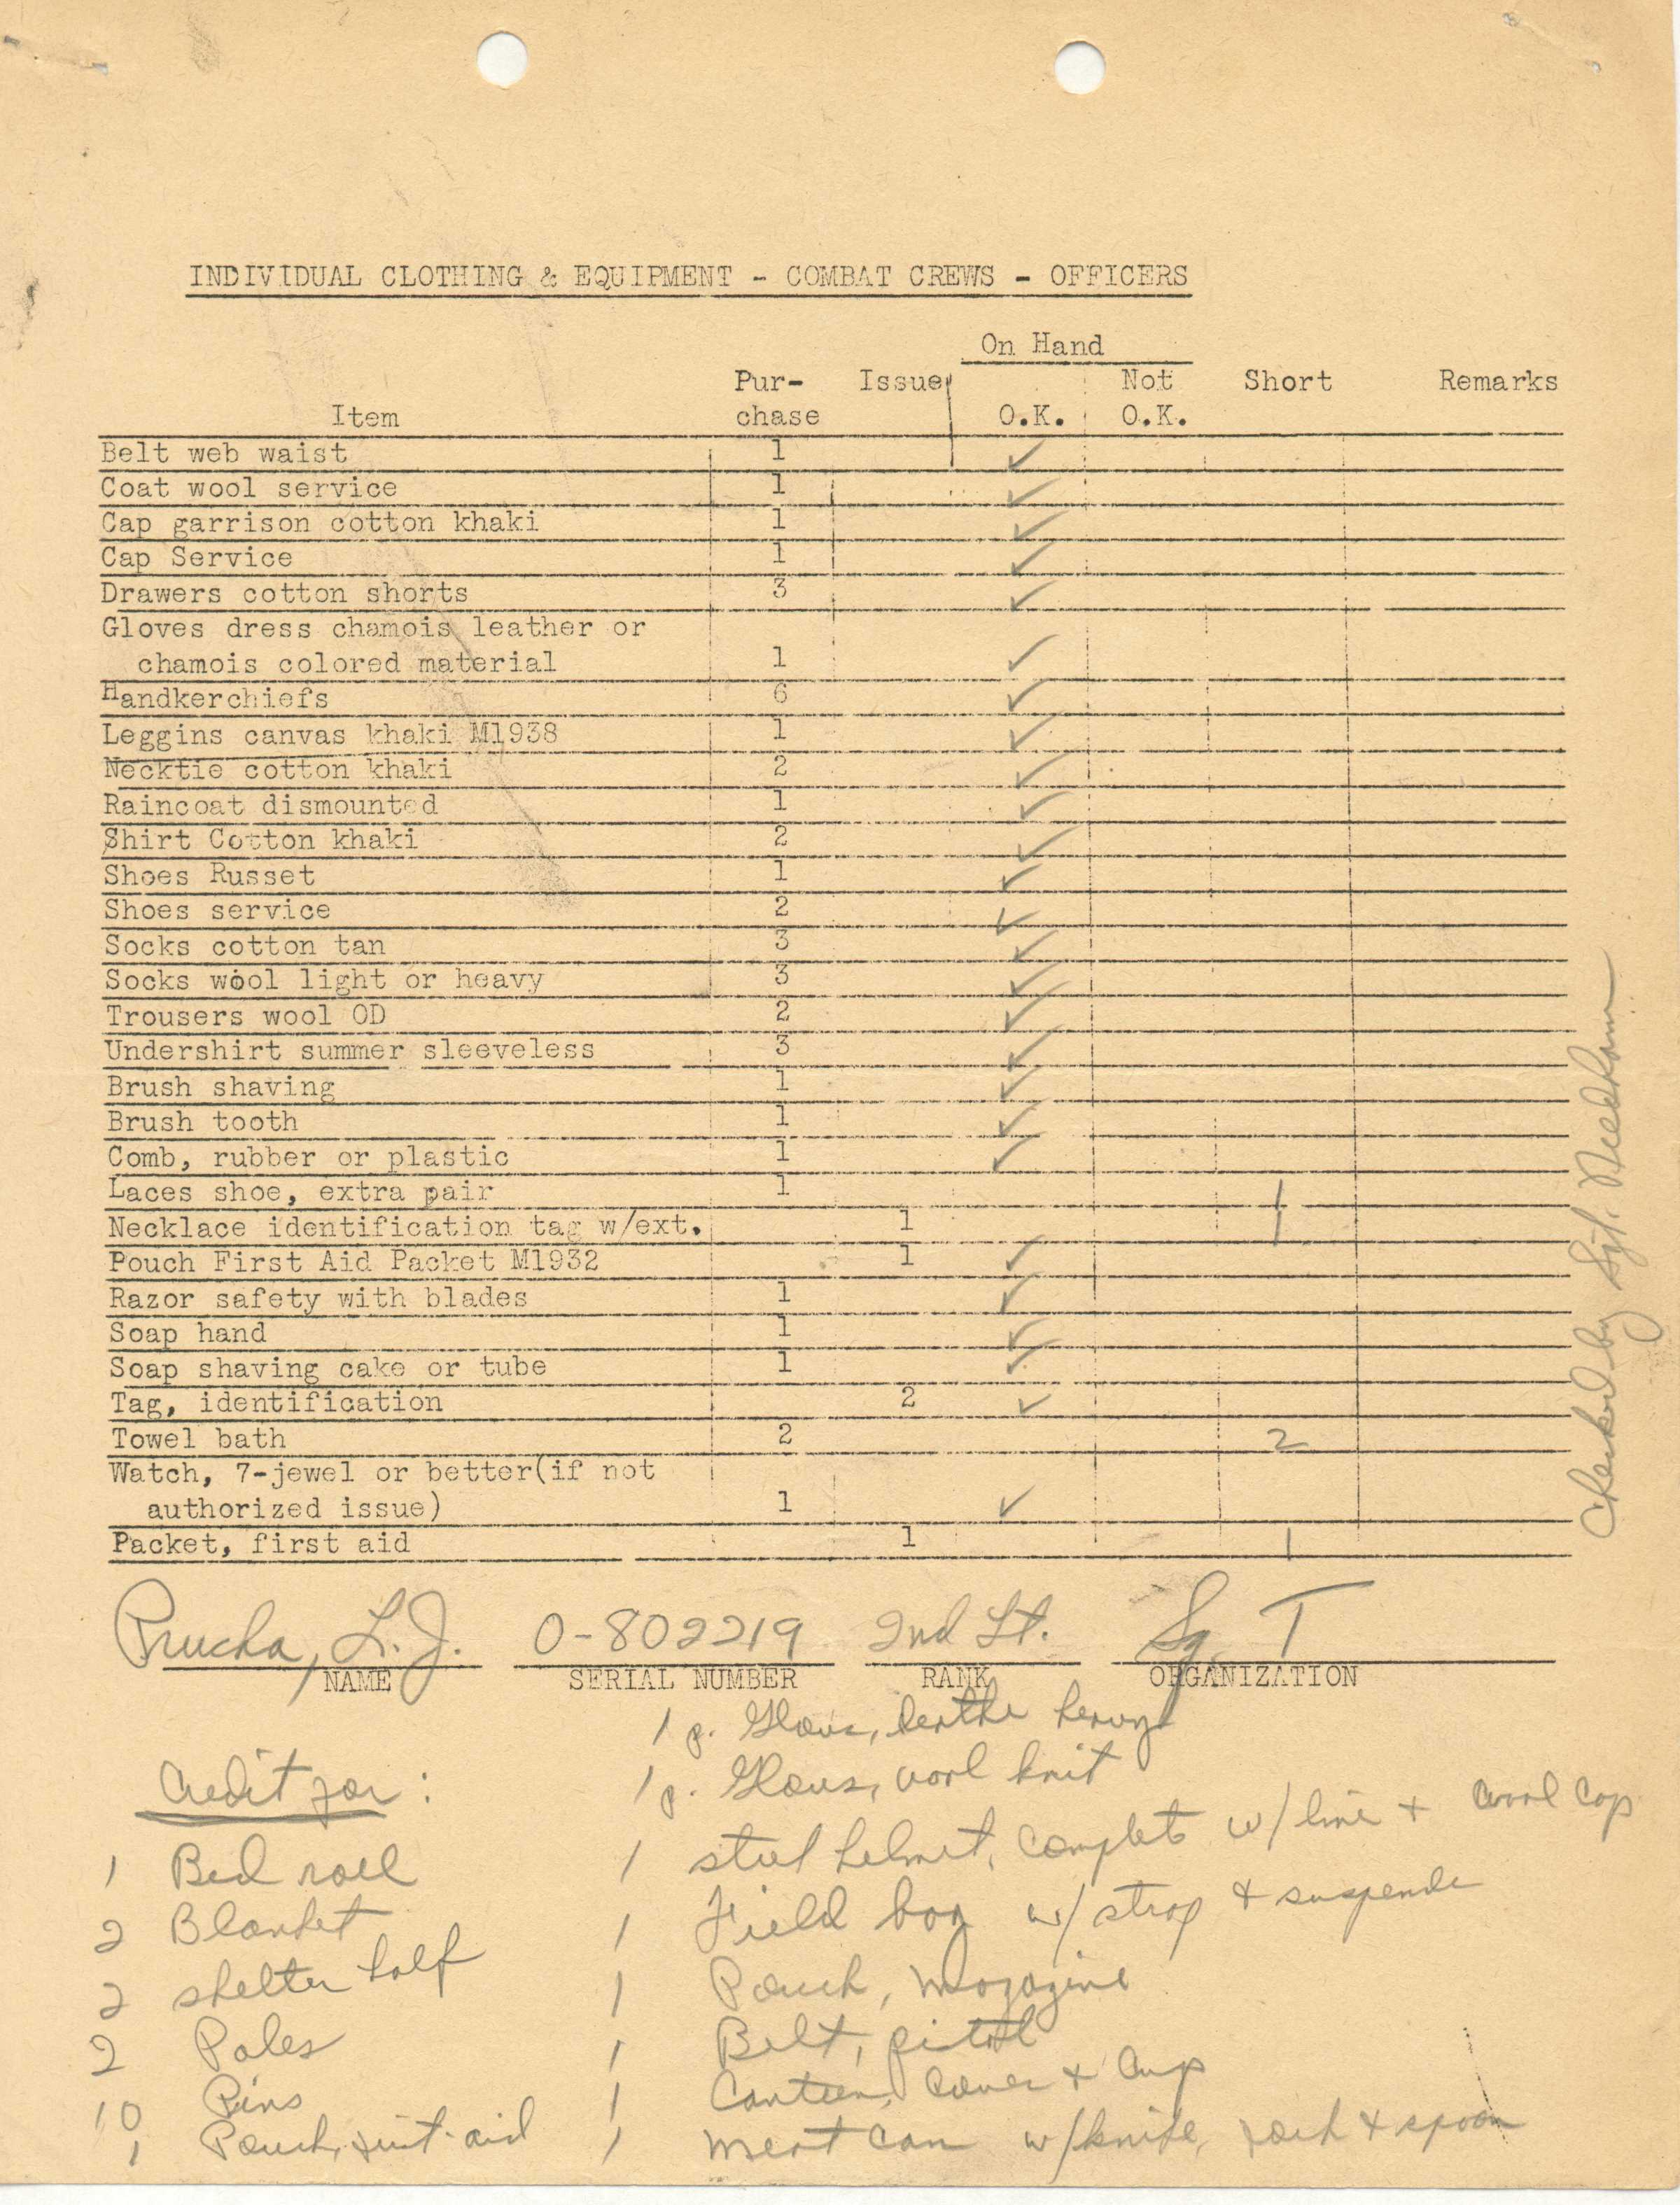 INDIVIDUAL CLOTHING & EQUIPMENT - COMBAT CREWS - OFFICERS
On Hand
Pur- Issue Not Short Remarks
Item chase O.K. O.K.
Belt web waist 1 ✓
Coat wool service 1 ✓
Cap garrison cotton khaki 1 ✓
Cap Service 1 ✓
Drawers cotton shorts 3 ✓
Gloves dress chamois leather or
chamois colored material 1 ✓
Handkerchiefs 6 ✓
Leggins canvas khaki M1938 1 ✓
Necktie cotton khaki 2 ✓
Raincoat dismounted 1 ✓
Shirt Cotton khaki 2 ✓
Shoes Russet 1 ✓
Shoes service 2 ✓
Socks cotton tan 3 ✓
Socks wool light or heavy 3 ✓
Trousers wool OD 2 ✓
Undershirt summer sleeveless 3 ✓
Brush shaving 1 ✓
Brush tooth 1 ✓
Comb, rubber or plastic 1 ✓
Laces shoe, extra pair 1 1
Necklace identification tag w/ext. 1 1
Pouch First Aid Packet M1932 1 ✓
Razor safety with blades 1 ✓
Soap hand 1 ✓
Soap shaving cake or tube 1 ✓
Tag, identification 2 ✓
Towel bath 2 2
Watch, 7-jewel or better(if not
authorized issue) 1 ✓
Packet, first aid 1 1
Checked by Sgt. Needham
Prucha, L.J. 0-802219 2nd Lt. Sq. T
NAME SERIAL NUMBER RANK ORGANIZATION
Credit for:
1 Bed roll
2 Blanket
2 shelter half
2 Poles
10 Pins
1 Pouch, first-aid
1 p. Gloves, leather heavy
1 p. Gloves, wool knit
1 steel helmet, complete w/ line + wool cap
1 Field bag w/ strap & suspende
1 Pouch, magazine
1 Belt, pistol
1 Canteen, cover + cup
1 meat can w/knife, fork & spoon